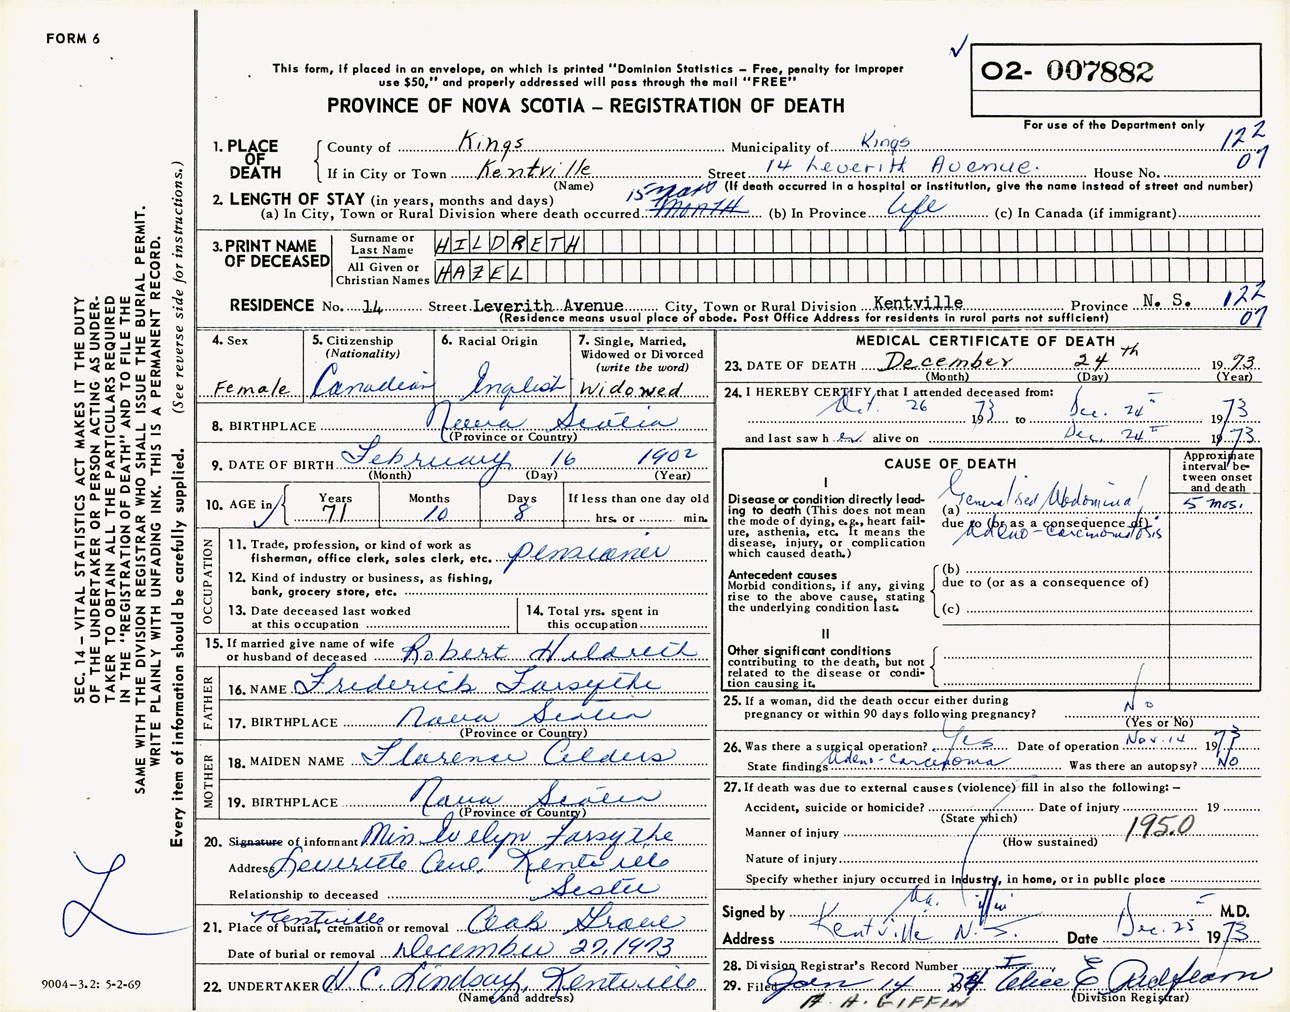 FORM 6
✓
O2- 007882
This form, if placed in an envelope, on which is printed "Dominion Statistics – Free, penalty for improper
use $50," and properly addressed will pass through the mail "FREE"
PROVINCE OF NOVA SCOTIA – REGISTRATION OF DEATH
For use of the Department only
122
07
1. PLACE OF DEATH
County of Kings Municipality of Kings
If in City or Town Kentville Street 14 Leverith Avenue. House No.
(Name) (If death occurred in a hospital or institution, give the name instead of street and number)
2. LENGTH OF STAY (in years, months and days)
(a) In City, Town or Rural Division where death occurred 15 (b) In Province Life (c) In Canada (if immigrant)
3. PRINT NAME OF DECEASED
Surname or Last Name HILDRETH
All Given or Christian Names HAZEL
RESIDENCE No. 14 Street Leverith Avenue City, Town or Rural Division Kentville Province N. S.
122
07
(Residence means usual place of abode. Post Office Address for residents in rural parts not sufficient)
4. Sex Female
5. Citizenship (Nationality) Canadian
6. Racial Origin English
7. Single, Married, Widowed or Divorced (write the word) Widowed
8. BIRTHPLACE Nova Scotia
(Province or Country)
9. DATE OF BIRTH February 16 1902
(Month) (Day) (Year)
10. AGE in Years 71 Months 10 Days 8 If less than one day old
hrs. or min.
OCCUPATION
11. Trade, profession, or kind of work as
fisherman, office clerk, sales clerk, etc. pensioner
12. Kind of industry or business, as fishing,
bank, grocery store, etc.
13. Date deceased last worked
at this occupation
14. Total yrs. spent in
this occupation
15. If married give name of wife
or husband of deceased Robert Hildreth
FATHER
16. NAME Frederick Forsythe
17. BIRTHPLACE Nova Scotia
(Province or Country)
MOTHER
18. MAIDEN NAME Florence
19. BIRTHPLACE Nova Scotia
(Province or Country)
20. Signature of informant Miss Evelyn Forsythe
Address Leverette Ave. Kentville
Relationship to deceased Sister
21. Place of burial, cremation or removal Kentville Oak Grove
Date of burial or removal December 27, 1973
22. UNDERTAKER H. C. Lindsay, Kentville
(Name and address)
MEDICAL CERTIFICATE OF DEATH
23. DATE OF DEATH December 24th 1973
(Month) (Day) (Year)
24. I HEREBY CERTIFY that I attended deceased from:
Oct. 26 1973 to Dec. 24th 1973
and last saw her alive on Dec. 24th 1973
CAUSE OF DEATH
Approximate interval between onset and death
I
Disease or condition directly leading to death (This does not mean the mode of dying, e.g., heart failure, asthenia, etc. It means the disease, injury, or complication which caused death.)
(a) Generalised Abdominal 5 mos.
due to (or as a consequence of)
Adeno-carcinomatosis
Antecedent causes
Morbid conditions, if any, giving rise to the above cause, stating the underlying condition last.
(b)
due to (or as a consequence of)
(c)
II
Other significant conditions
contributing to the death, but not related to the disease or condition causing it.
25. If a woman, did the death occur either during
pregnancy or within 90 days following pregnancy? No
(Yes or No)
26. Was there a surgical operation? Yes Date of operation Nov. 14 1973
State findings Adeno-carcinoma Was there an autopsy? No
27. If death was due to external causes (violence) fill in also the following: –
Accident, suicide or homicide? Date of injury 19
(State which)
Manner of injury 195.0
(How sustained)
Nature of injury
Specify whether injury occurred in Industry, in home, or in public place
Signed by M.D.
Address Kentville N.S. Date Dec. 25 1973
28. Division Registrar's Record Number
29. Filed Jan 14 1974 Alice E
(Division Registrar)
A. H. GIFFIN
SEC. 14 – VITAL STATISTICS ACT MAKES IT THE DUTY
OF THE UNDERTAKER OR PERSON ACTING AS UNDER-
TAKER TO OBTAIN ALL THE PARTICULARS REQUIRED
IN THE "REGISTRATION OF DEATH" AND TO FILE THE
SAME WITH THE DIVISION REGISTRAR WHO SHALL ISSUE THE BURIAL PERMIT.
WRITE PLAINLY WITH UNFADING INK. THIS IS A PERMANENT RECORD.
Every item of information should be carefully supplied. (See reverse side for instructions.)
9004–3.2: 5-2-69